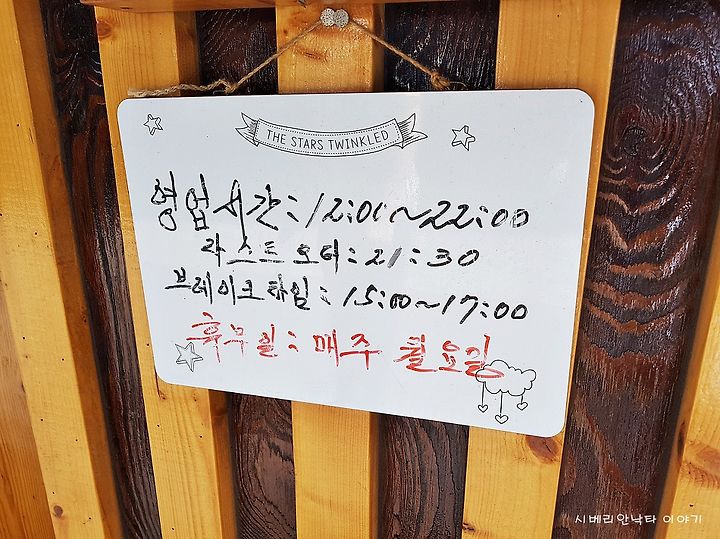 THE STARS TWINKLED
영업시간:12:00~22:00
라스트오더:21:30
브레이크타임:15:00~17:00
휴무일:매주 월요일
시베리안낙타 이야기